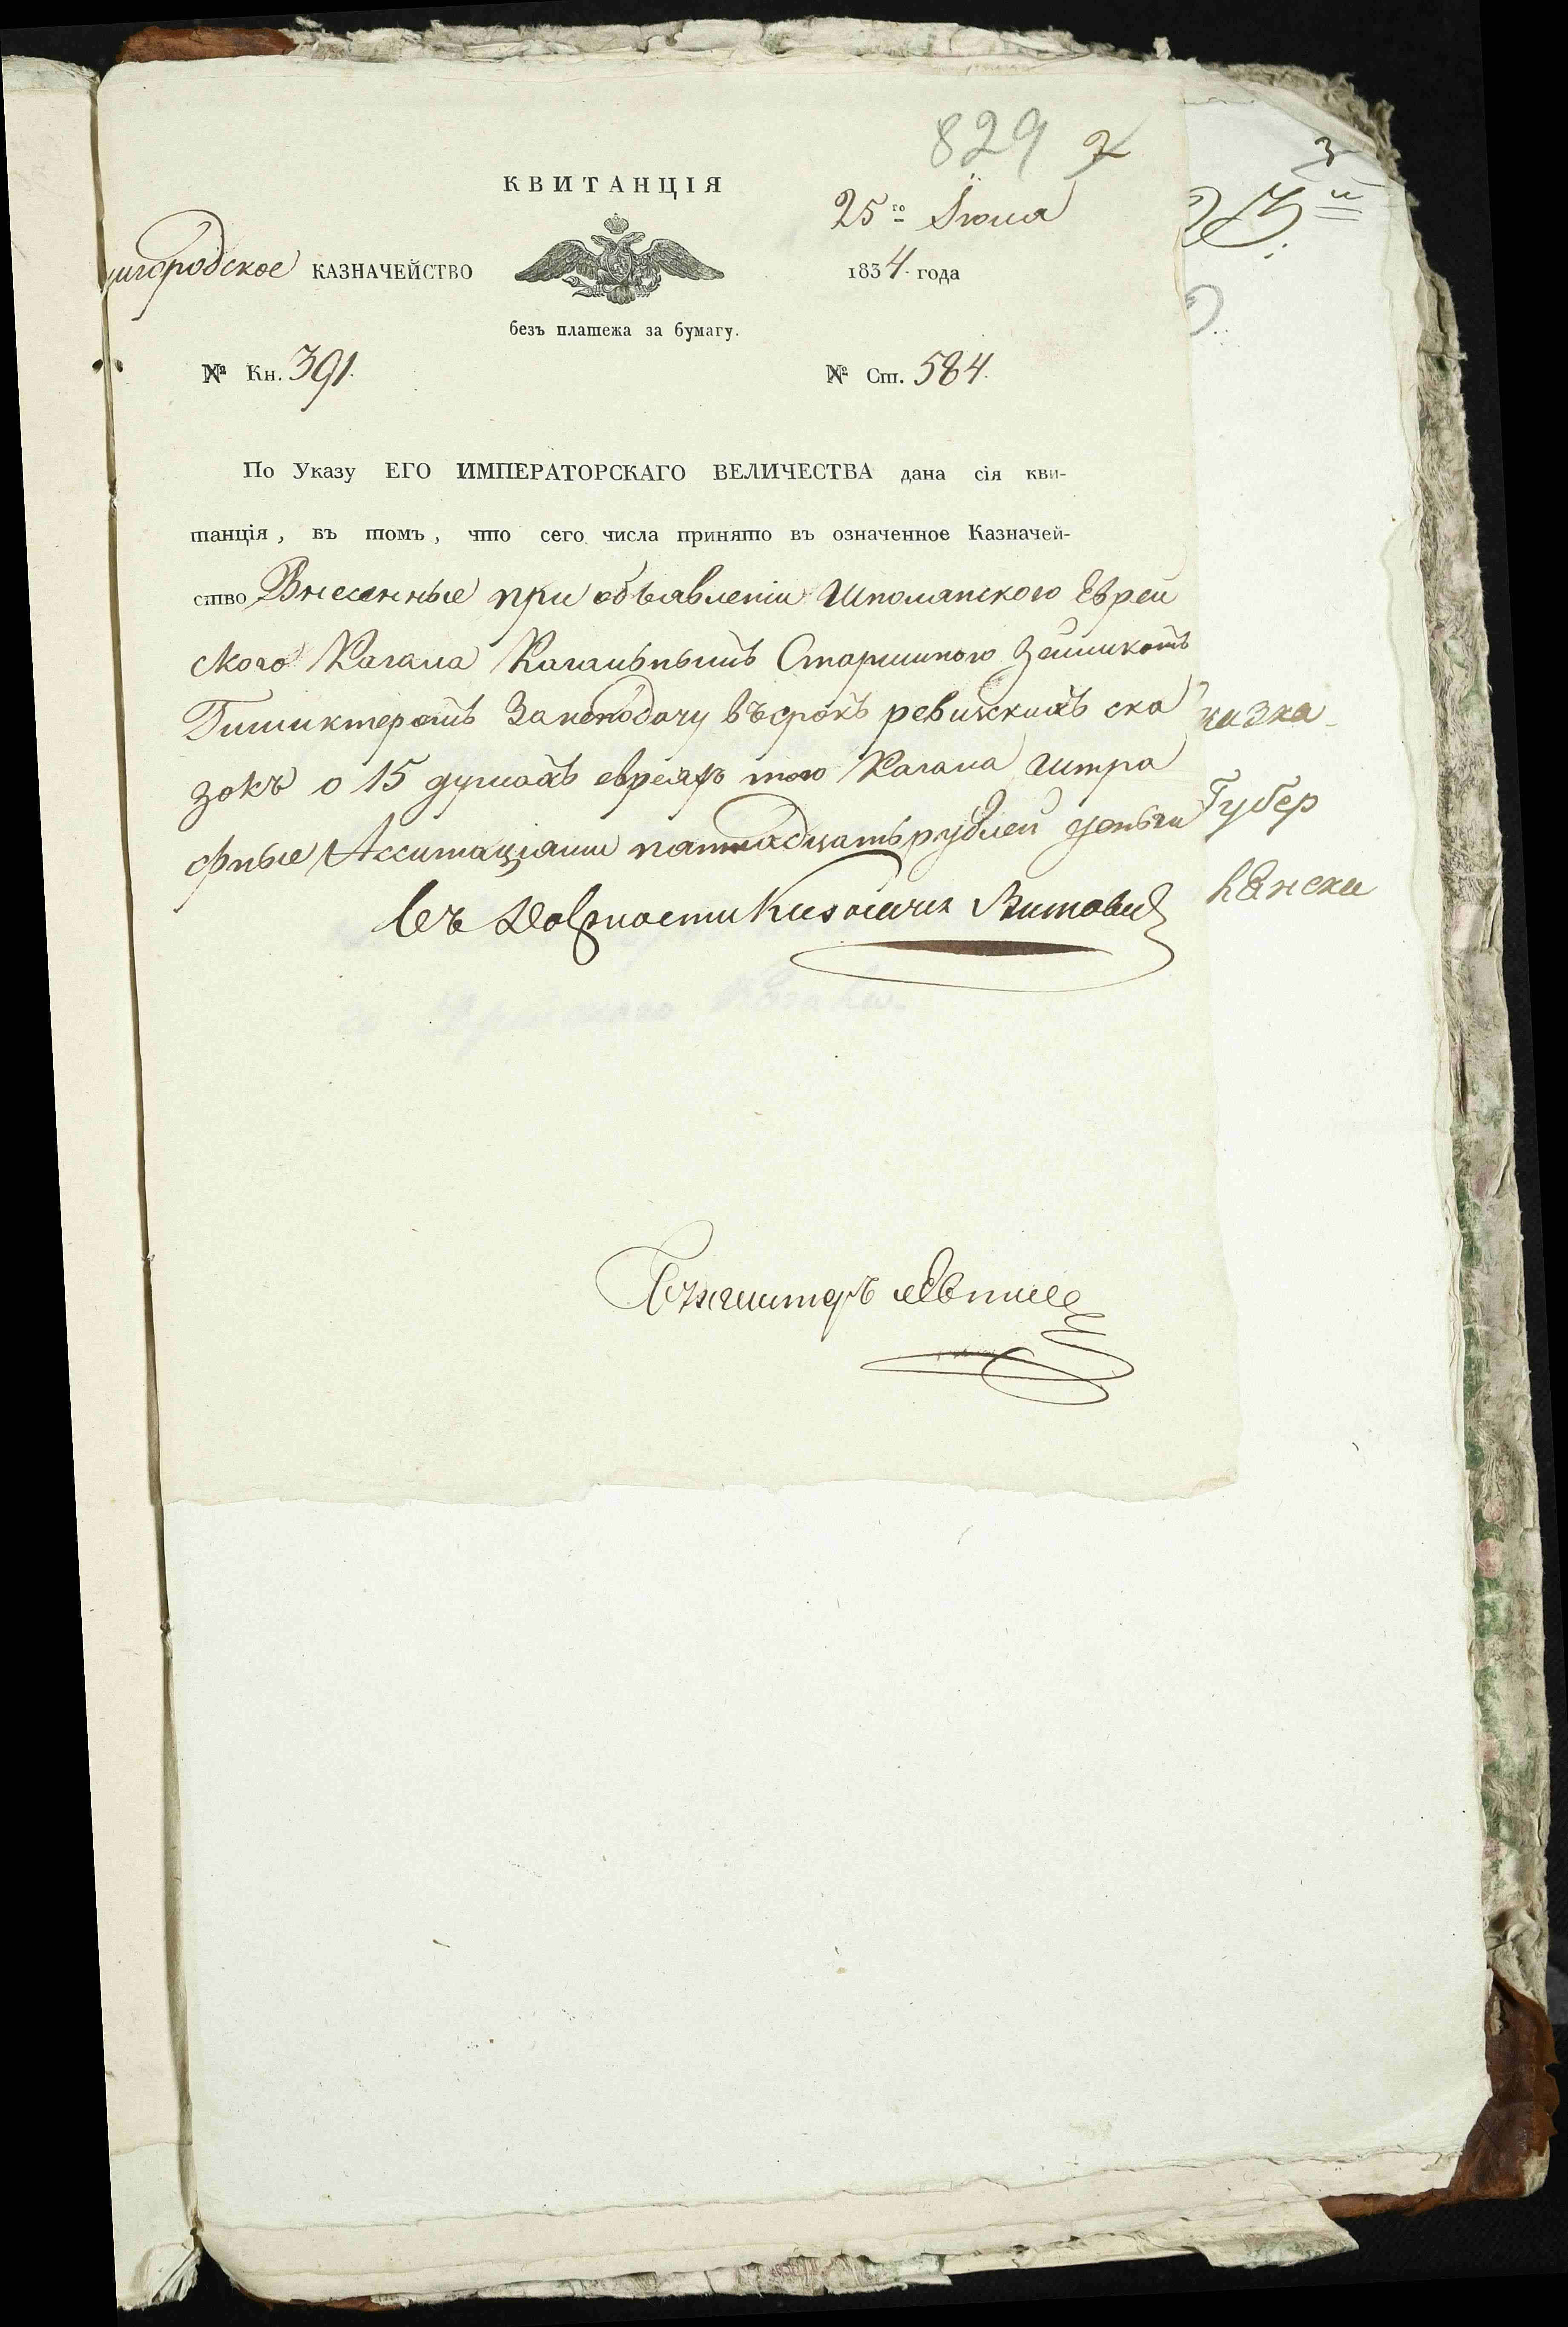 829 2
3
КВИТАНЦІЯ
25го Іюня
шгородское КАЗНАЧЕЙСТВО
1834. года
безъ платежа за бумагу.
№ Кн. 391.
№ Ст. 584.
По Указу ЕГО ИМПЕРАТОРСКАГО ВЕЛИЧЕСТВА дана сія кви-
танція, въ томъ, что сего числа принято въ означенное Казначей-
ство Внесенные при объявленіи Шполянского Еврей
ского Кагала Кагальнымъ Старшиною
За неподачу въ срокъ ревизскихъ ска
зокъ о 15 душахъ евреяхъ того Кагала Штра
фные Ассигнаціями пятнадцать рублей деньги
казка
Губер